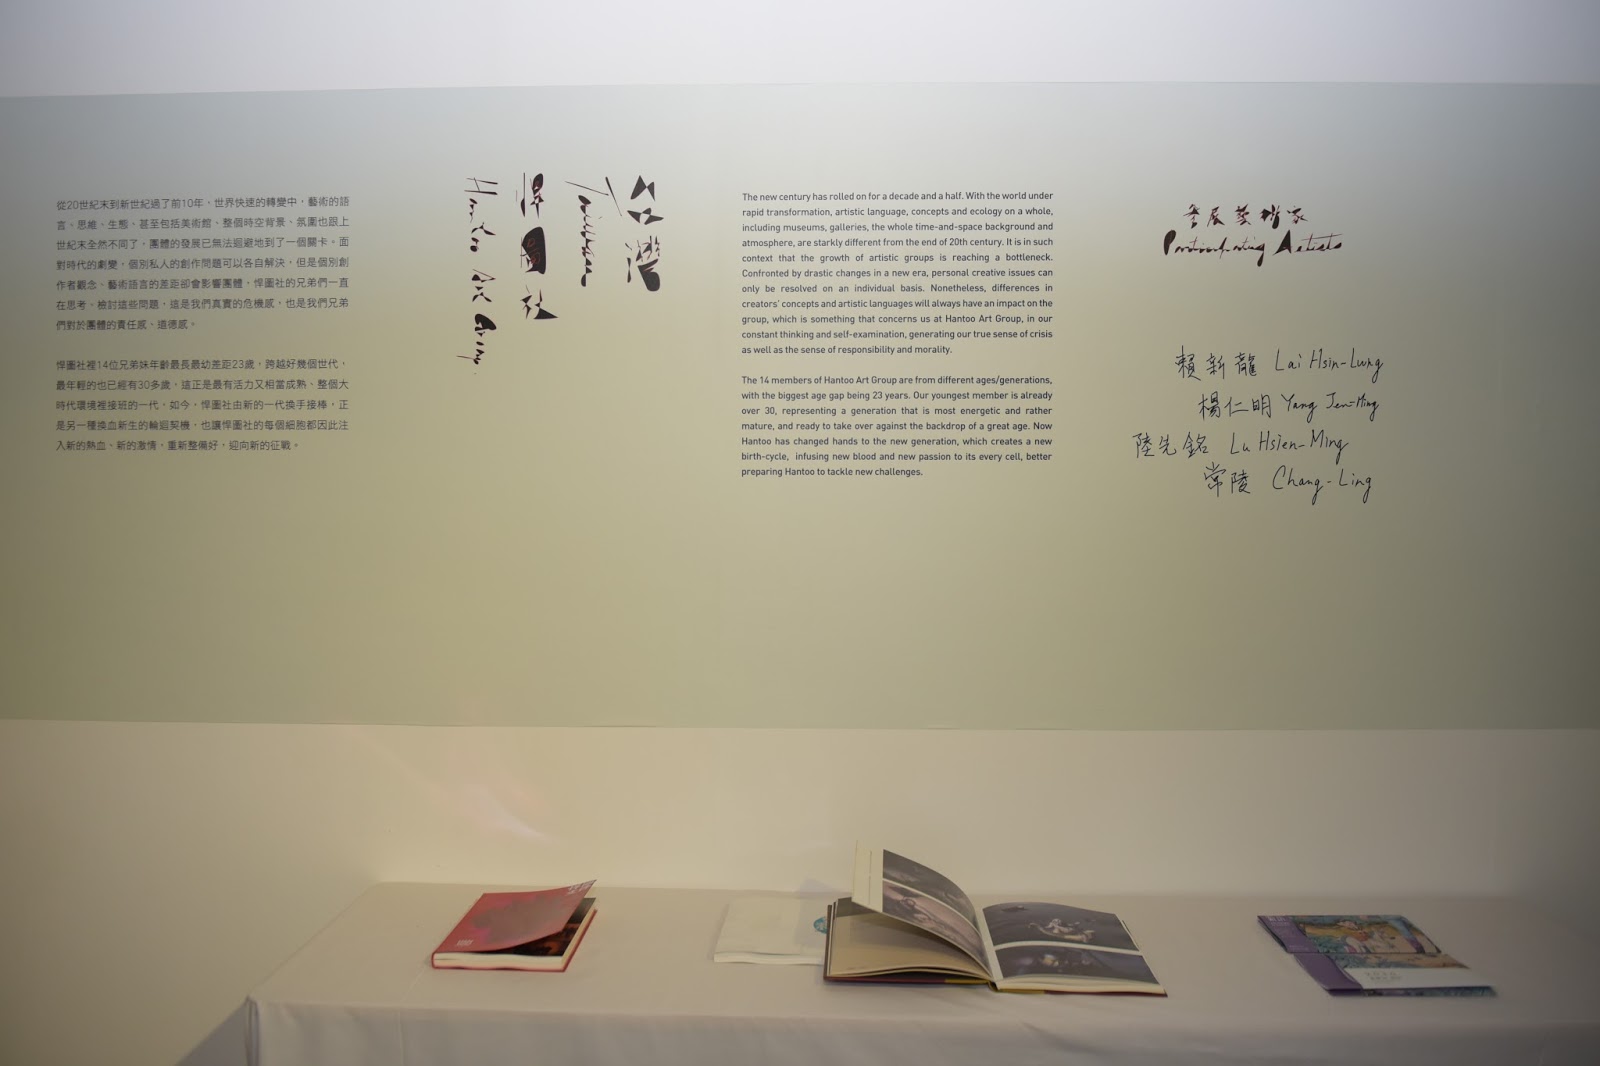 從20世紀末到新世紀過了前10年，世界快速的轉變中，藝術的語
言、思維、生態、甚至包括美術館、整個時空背景、氛圍也跟上
世紀末全然不同了，團體的發展已無法迴避地到了一個關卡。面
對時代的劇變，個別私人的創作問題可以各自解決，但是個別創
作者觀念、藝術語言的差距卻會影響團體，悍圖社的兄弟們一直
在思考、檢討這些問題，這是我們真實的危機感，也是我們兄弟
們對於團體的責任感、道德感。
悍圖社裡14位兄弟妹年齡最長最幼差距23歲，跨越好幾個世代，
最年輕的也已經有30多歲，這正是最有活力又相當成熟、整個大
時代環境裡接班的一代，如今，悍圖社由新的一代換手接棒，正
是另一種換血新生的輪迴契機，也讓悍圖社的每個細胞都因此注
入新的熱血、新的激情，重新整備好，迎向新的征戰。
台灣
Taiwan
悍圖社
Hantoo Art Group
The new century has rolled on for a decade and a half. With the world under
rapid transformation, artistic language, concepts and ecology on a whole,
including museums, galleries, the whole time-and-space background and
atmosphere, are starkly different from the end of 20th century. It is in such
context that the growth of artistic groups is reaching a bottleneck.
Confronted by drastic changes in a new era, personal creative issues can
only be resolved on an individual basis. Nonetheless, differences in
creators' concepts and artistic languages will always have an impact on the
group, which is something that concerns us at Hantoo Art Group, in our
constant thinking and self-examination, generating our true sense of crisis
as well as the sense of responsibility and morality.
The 14 members of Hantoo Art Group are from different ages/generations,
with the biggest age gap being 23 years. Our youngest member is already
over 30, representing a generation that is most energetic and rather
mature, and ready to take over against the backdrop of a great age. Now
Hantoo has changed hands to the new generation, which creates a new
birth-cycle, infusing new blood and new passion to its every cell, better
preparing Hantoo to tackle new challenges.
參展藝術家
Participating Artists
賴新龍 Lai Hsin-Lung
楊仁明 Yang Jen-Ming
陸先銘 Lu Hsien-Ming
常陵 Chang-Ling